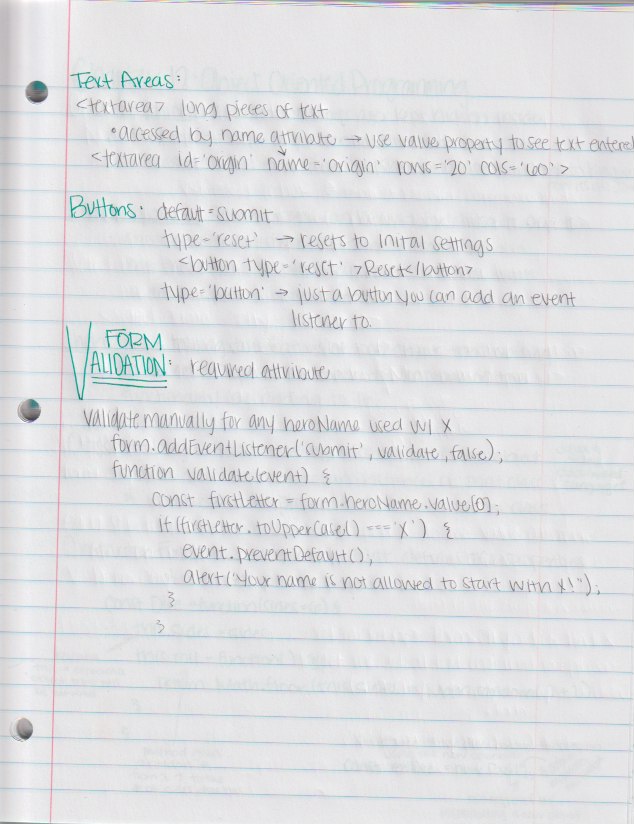 Text Areas:
<textarea> long pieces of text
• accessed by name attribute → use value property to see text entered
<textarea id='origin' name='origin' rows='20' cols='60'>
Buttons: default=submit
type='reset' → resets to inital settings
<button type='reset'>Reset</button>
type='button' → just a button you can add an event
listener to.
FORM
VALIDATION: required attribute
Validate manually for any heroName used w/ X
form.addEventListener('submit', validate, false);
function validate(event) {
const firstLetter = form.heroName.value[0];
if (firstLetter.toUpperCase() === 'X') {
event.preventDefault();
alert('Your name is not allowed to start with X!');
}
}